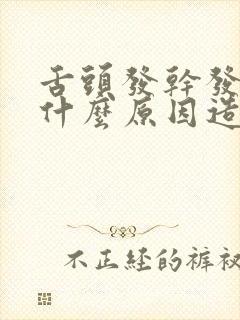 舌頭發幹發
什麼原因造
不正経的褲衩